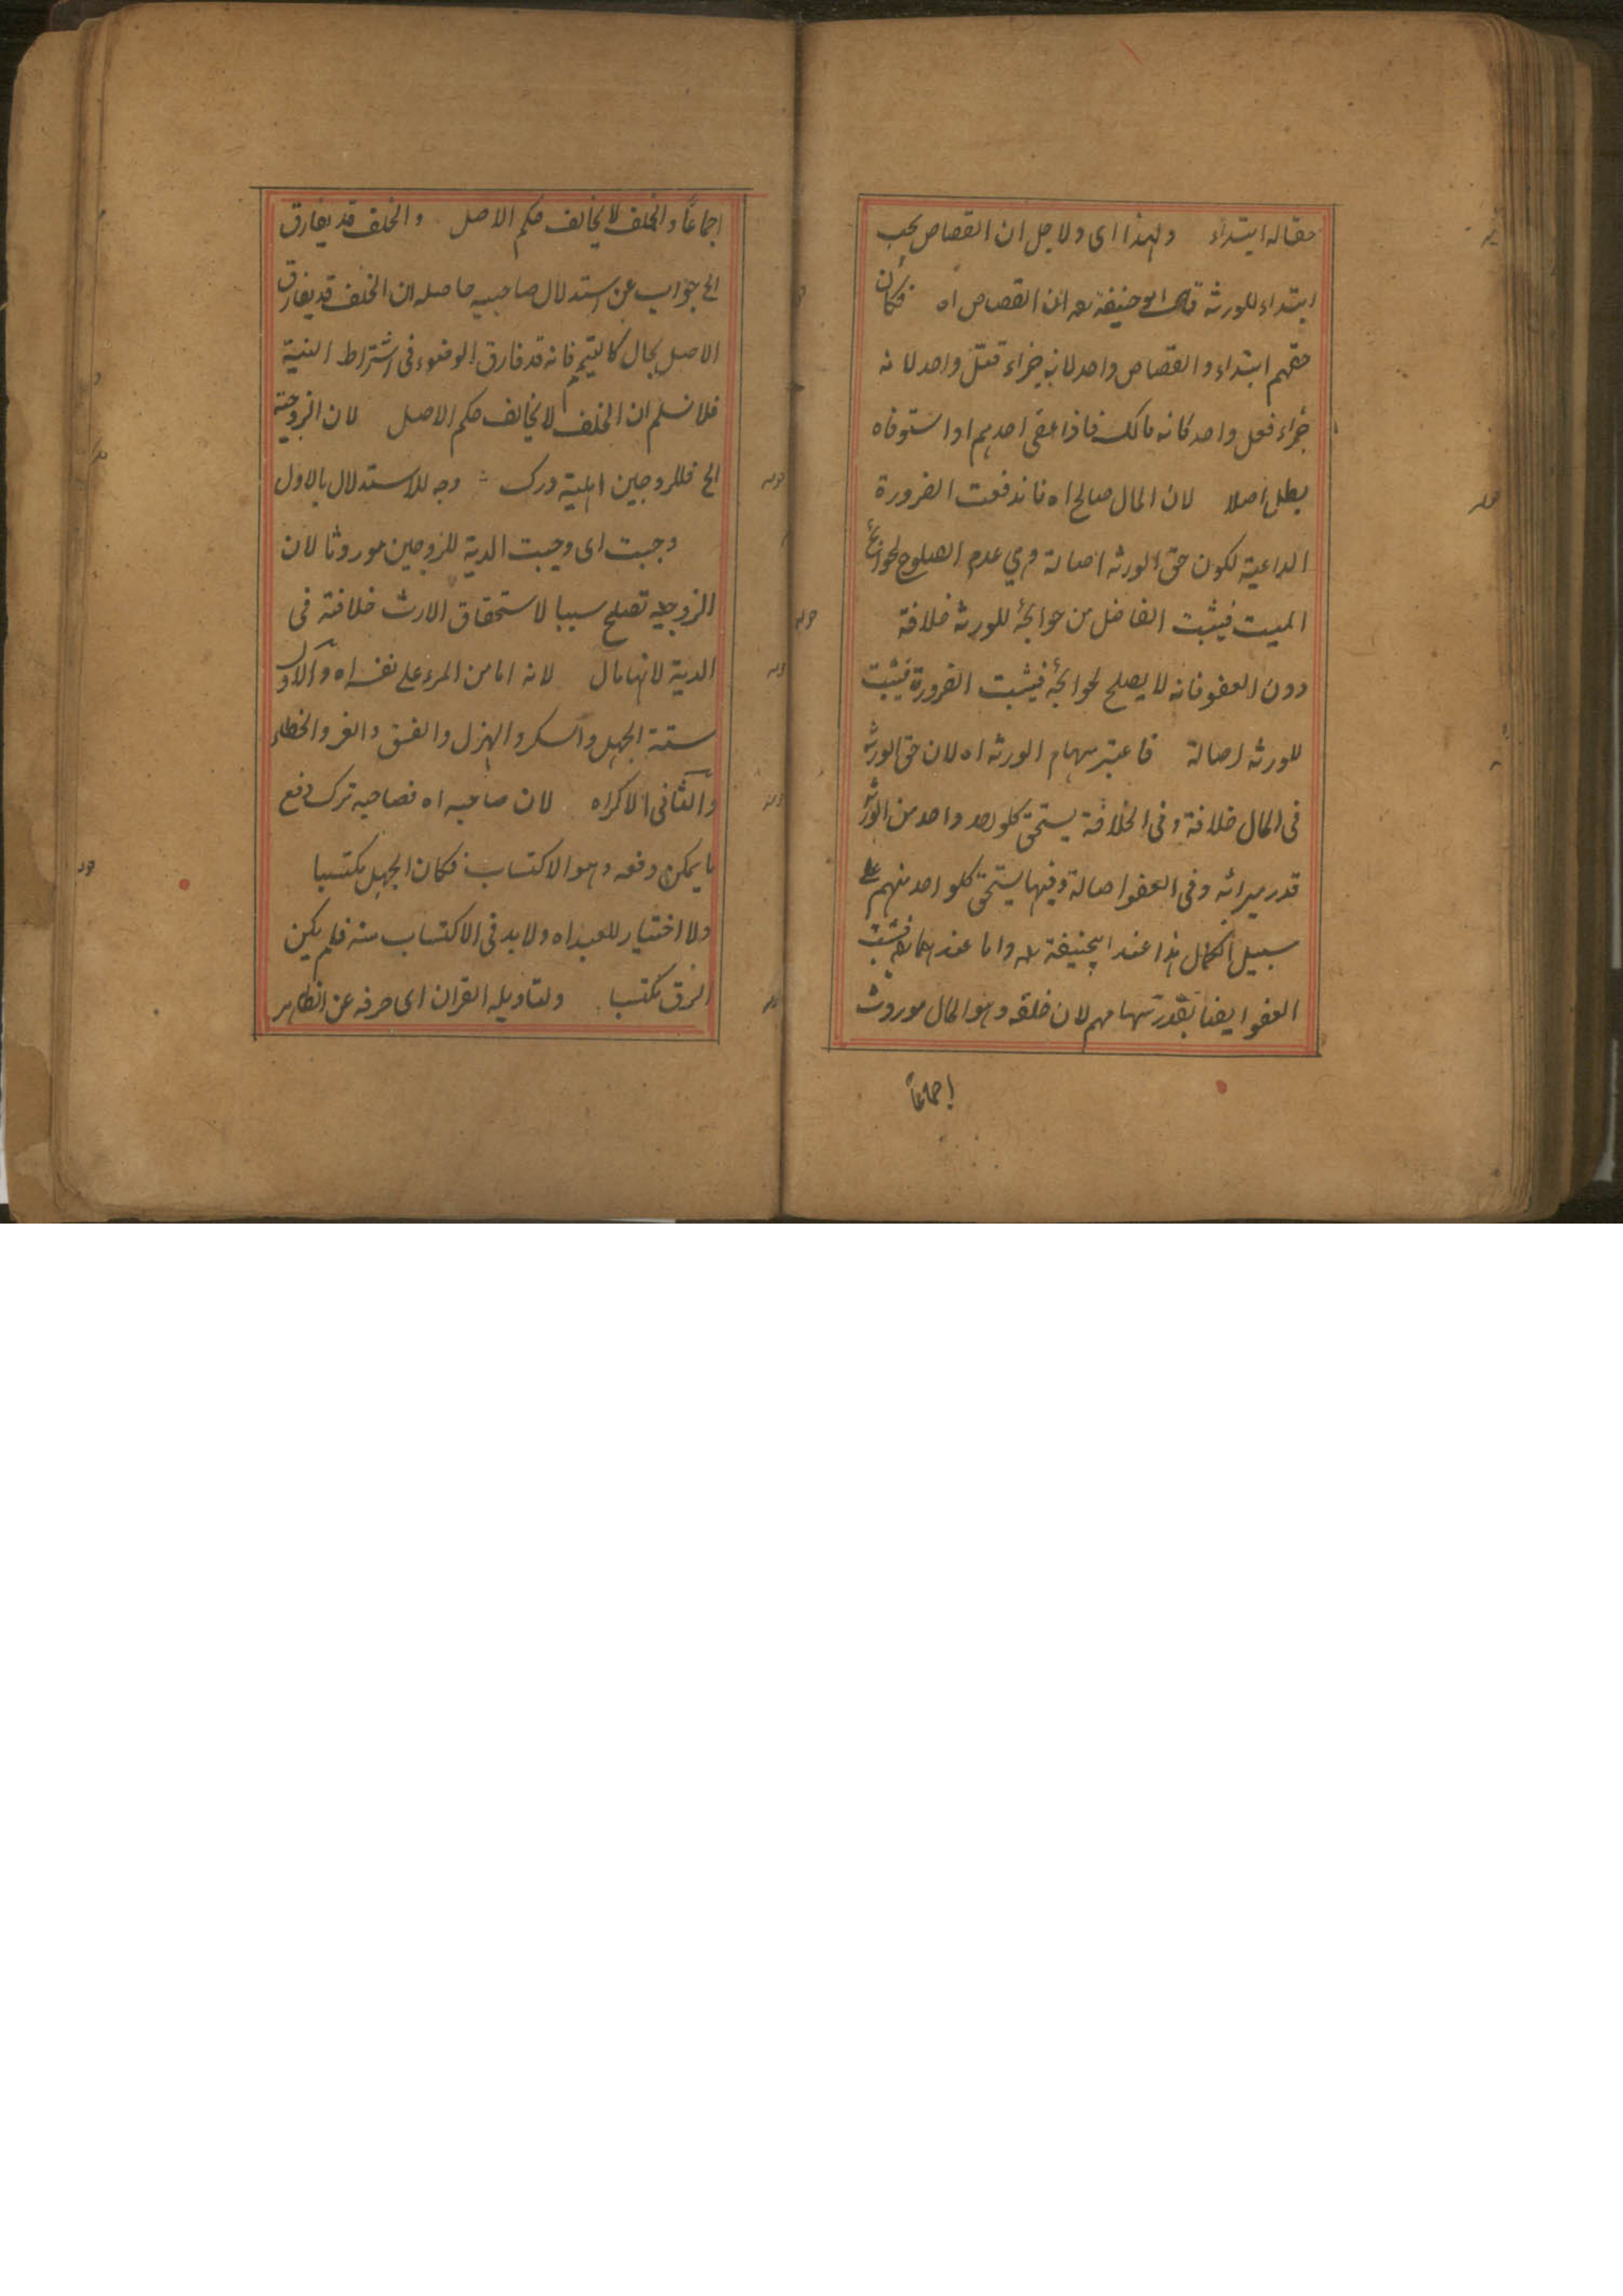 حقاله ابتداء ولهذا ای ولاجل ان القصاص یجب
ابتداء للورثة قال ابو حنیفة ان القصاص اه فکان
حقهم ابتداء والقصاص واحد لانه جزاء قتل واحد لانه
جزاء فعل واحد کانه مالک فاذا عفی احدهم او استوفاه
بطل اصلا لان المال صالح اه فاندفعت الضرورة
الداعیة لکون حق الورثه اصالة وهی عدم الصلوح لحوائج
المیت فیثبت الفاضل من حوائجه للورثه خلافة
دون العفو فانه لا یصلح لحوائجه فیثبت الضرورة فیثبت
للورثه اصالة فاعتبر سهام الورثه اه لان حق الورثه
فی المال خلافة وفی الخلافة یستحق کل واحد من الورثه
قدر میراثه وفی العفو اصالة وفیها یستحق کلواحد منهم علی
سبیل الکمال هذا عند ابیحنیفة واما عندهما فیثبت
العفو ایضا بقدر سهامهم لان خلفه وهو المال موروث
اجماعاً
اجماعاً والخلف لا یخالف حکم الاصل والخلف قد یفارق
الخ جواب عن استدلال صاحبیه حاصله ان الخلف قد یفارق
الاصل بحال کالتیمم فانه قد فارق الوضوء فی اشتراط النیة
فلا نسلم ان الخلف لا یخالف حکم الاصل لان الزوجیة
الخ فللزوجین اهلیة درک وجه للاستدلال بالاول
وجبت ای وجبت الدیة للزوجین موروثا لان
الزوجیة تصلح سببا لاستحقاق الارث خلافة فی
الدیة لانها مال لانه اما من المرء علی نفسه اه والاول
ستة الجهل والسکر والهزل والفسق والسفر والخطاء
والثانی الاکراه لان صاحبه اه فصاحبه ترک دفع
ما یمکن دفعه وهو الاکتساب فکان الجهل مکتسبا
ولا اختیار للعبد اه ولا بد فی الاکتساب منه فلم یکن
الرق مکتسبا ولتاویله القران ای صرفه عن الظاهر